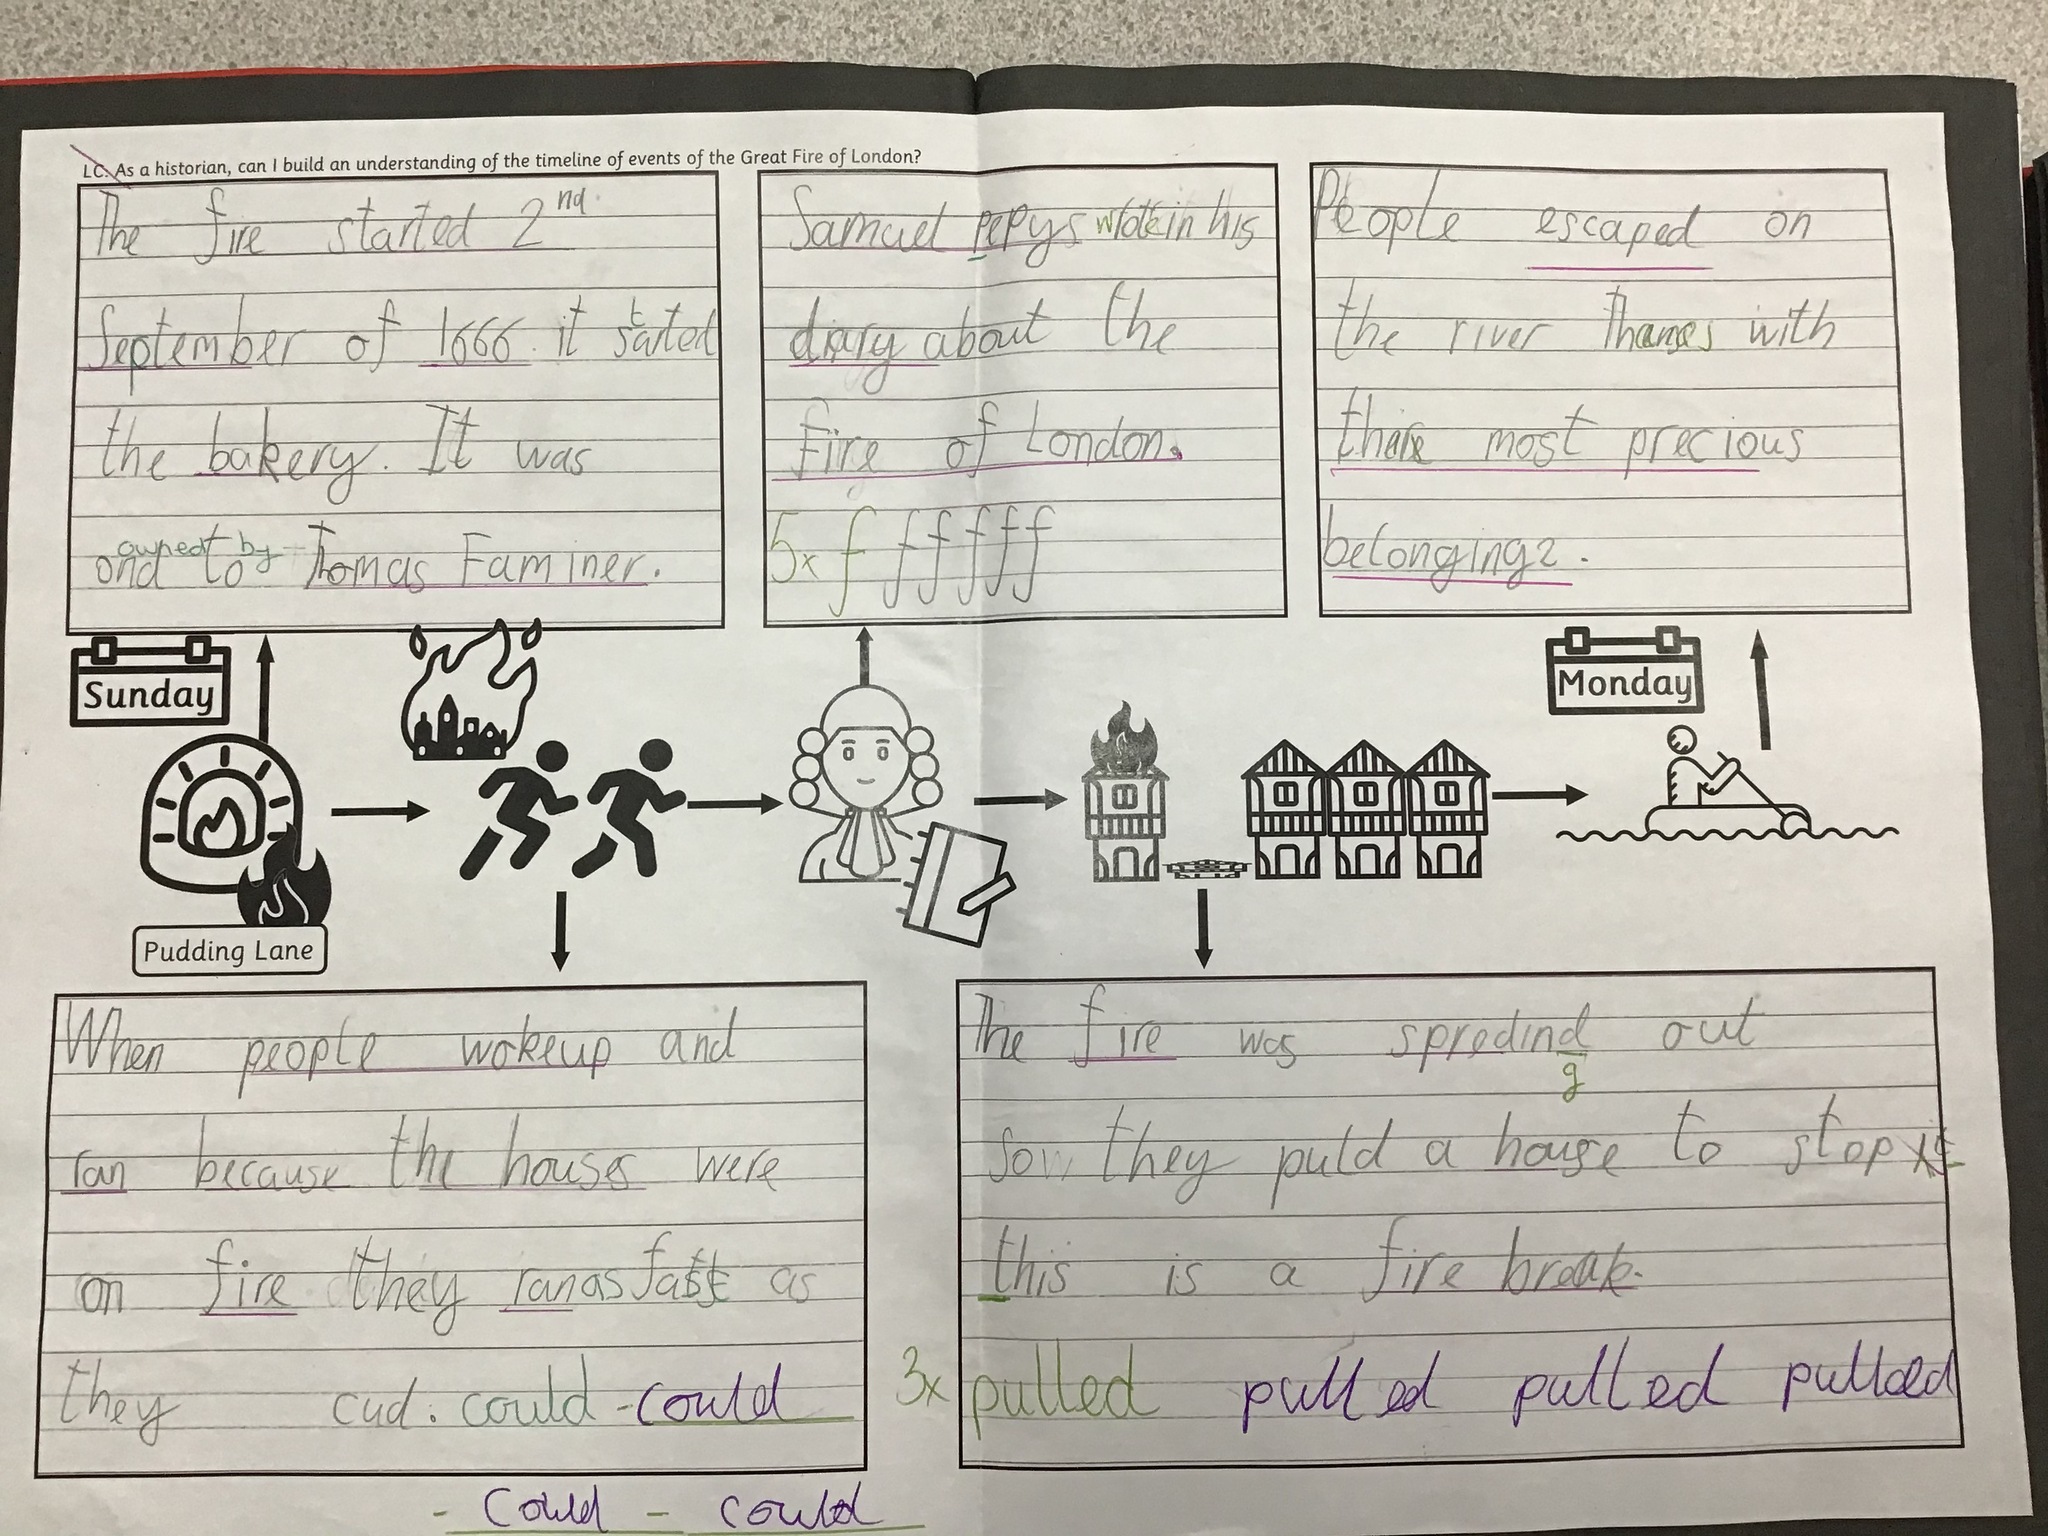 LC: As a historian, can I build an understanding of the timeline of events of the Great Fire of London?
The fire started 2nd
September of 1666. it sated
t
the bakery. It was
owned by
ond to Thomas Faminer.
Samuel pepys wrote in his
diary about the
fire of London.
5x f f f f f f
People escaped on
the river Thames with
there most precious
belongings.
Sunday
Monday
Pudding Lane
When people wokeup and
ran because the houses were
on fire they ran as fast as
they cud. could - could
- could - could
The fire was spredind out
g
sow they puld a house to stop it
this is a fire break.
3x pulled pulled pulled pulled